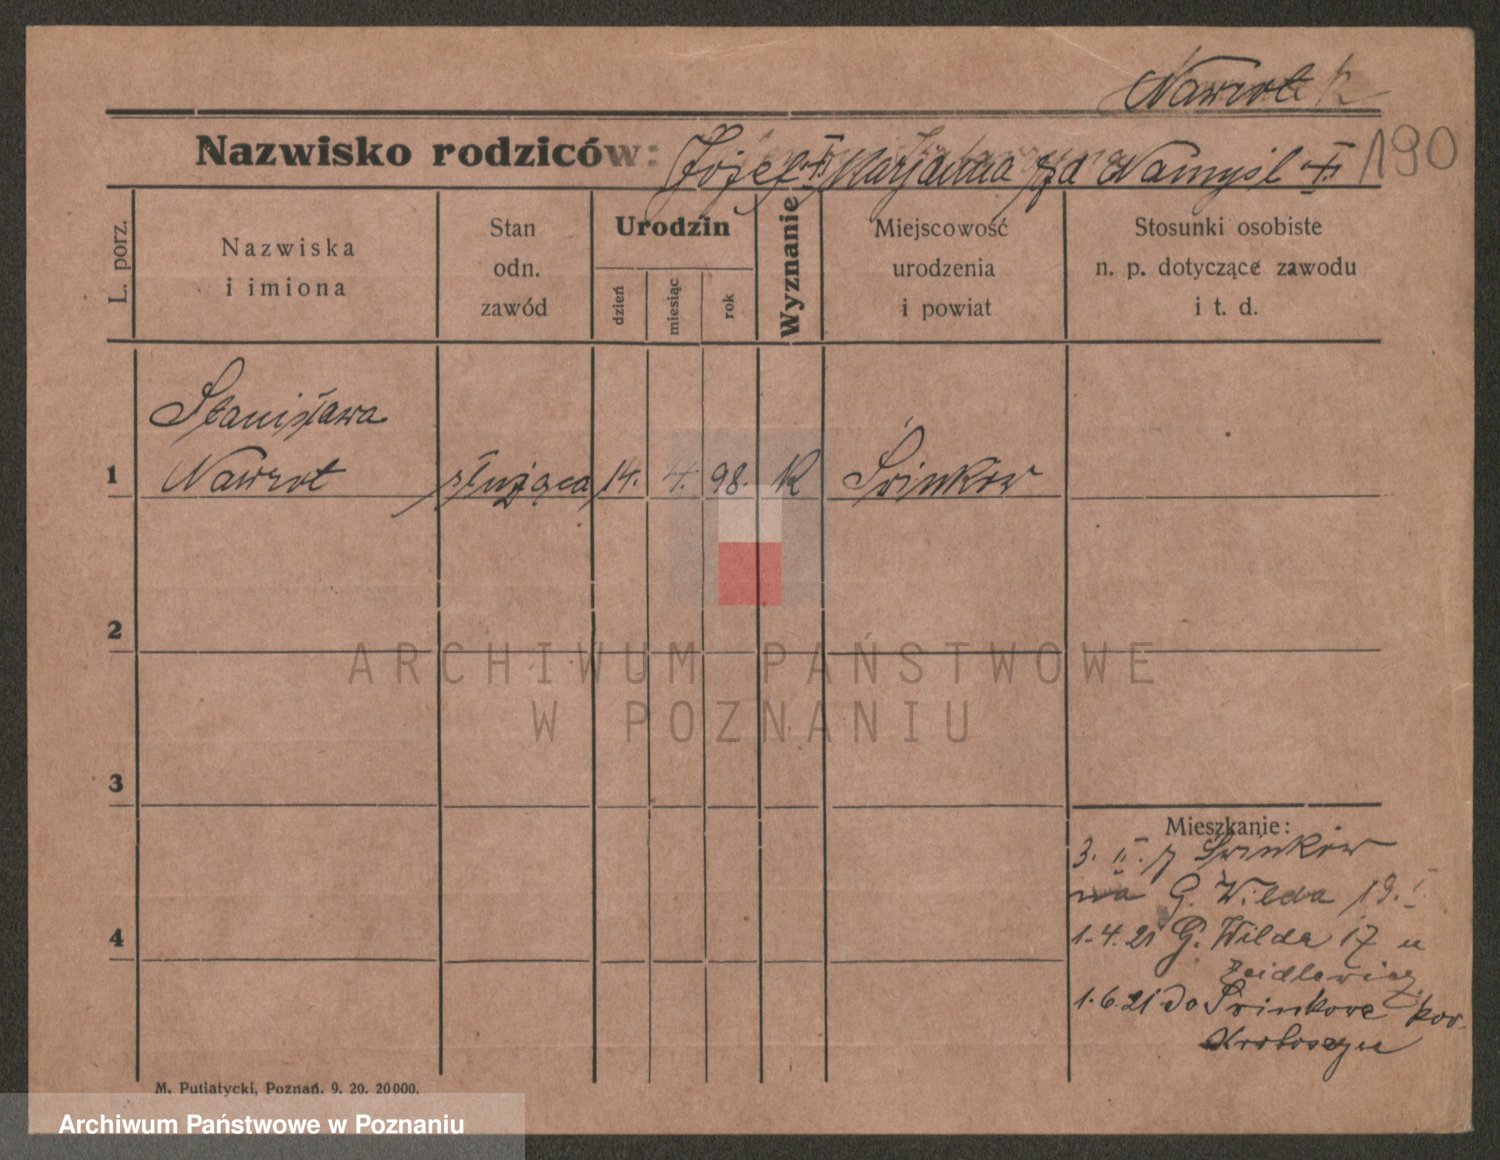 Nawrot
Nazwisko rodziców: Józef Marjanna zd Namyśl
190
L. porz.
Nazwiska
i imiona
Stan
odn.
zawód
Urodzin
dzień
miesiąc
rok
Wyznanie
Miejscowość
urodzenia
i powiat
Stosunki osobiste
n. p. dotyczące zawodu
i t. d.
Stanisława
1 Nawrot służąca 14. 4. 98. K
2
3
4
Mieszkanie:
3. II.
G. Wilda 19. I
1.4.21 G. Wilda 17 u
1.6.21 do
Krotoszyn
M. Putiatycki, Poznań. 9. 20. 20000.
ARCHIWUM PAŃSTWOWE
W POZNANIU
Archiwum Państwowe w Poznaniu